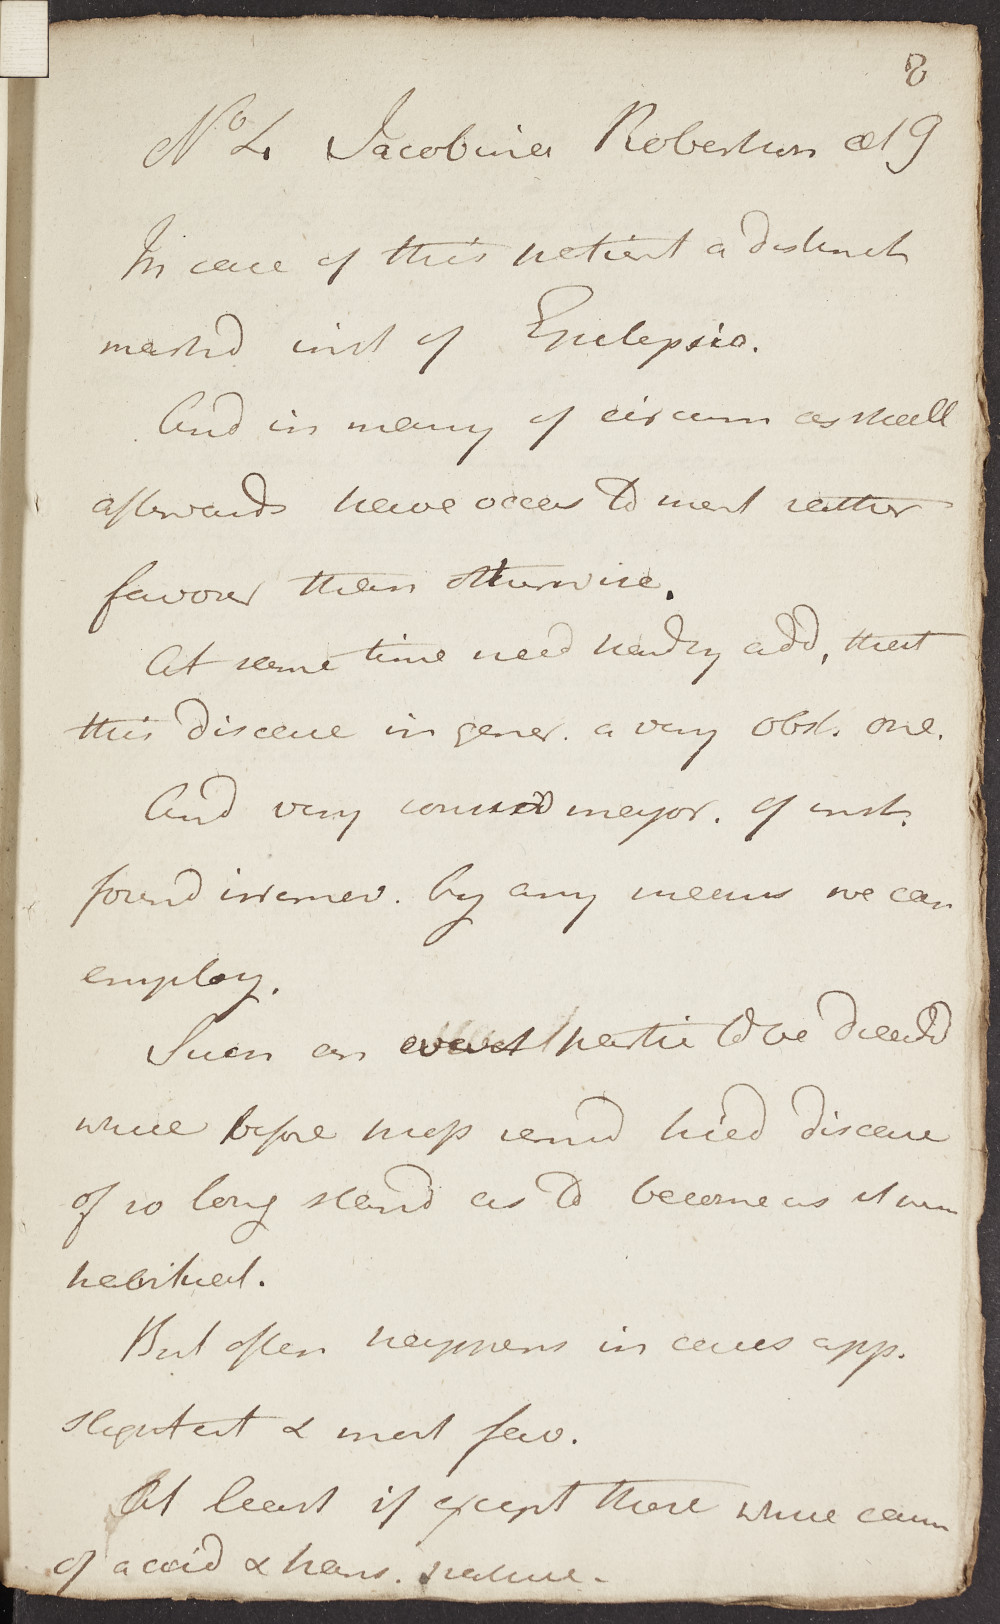 8
No 4 Jacobina Robertson æt 9
In case of this patient a distinct
markd inst of Epilepsia.
And in many of circum as shall
afterwards have occas to ment rather
favover than otherwise.
At same time need hardly add, that
this disease in gener. a very obst. one.
And very considd major. of inst.
found irremed. by any means we can
employ.
Such an event partic to be dreadd
where before prop remd tried disease
of so long standg as to become as it were
habitual.
But often happens in cases app.
slightest & most fav.
At least if except those where caus
of accid & trans. nature.